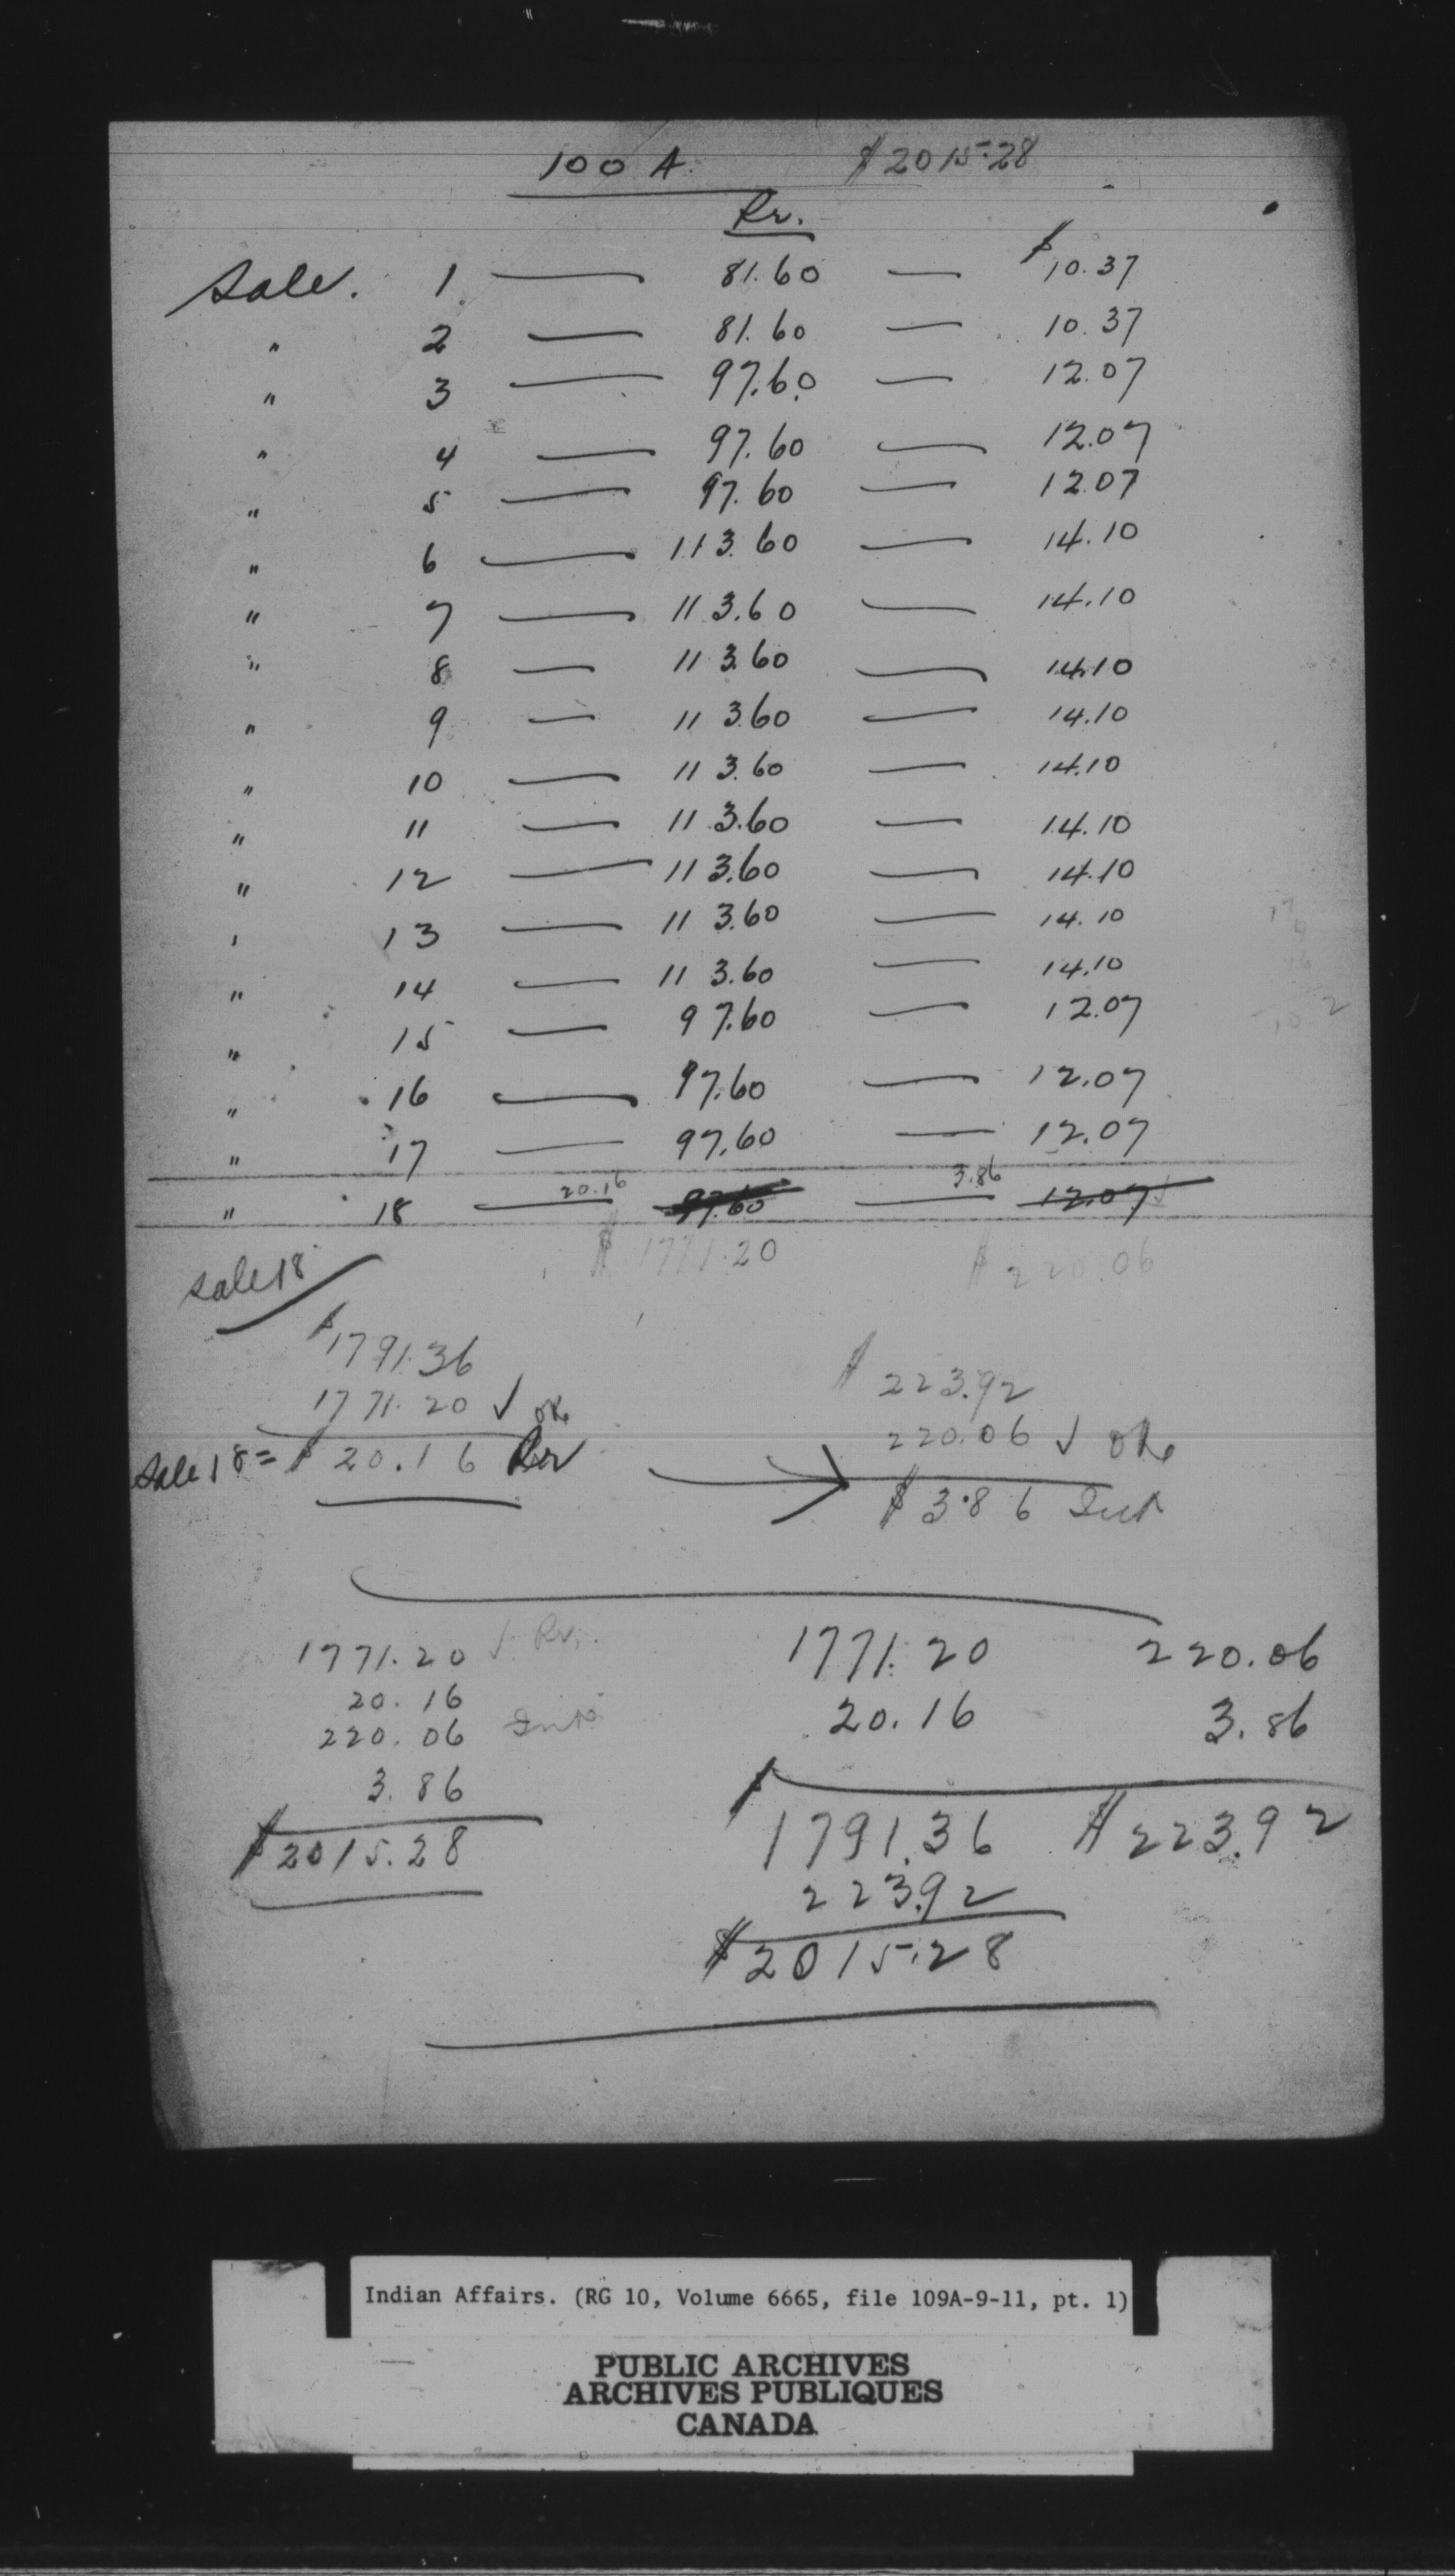 100 A. $2015.28
Pr.
Sale. 1 — 81.60 — $10.37
" 2 — 81.60 — 10.37
" 3 — 97.60 — 12.07
" 4 — 97.60 — 12.07
" 5 — 97.60 — 12.07
" 6 — 113.60 — 14.10
" 7 — 113.60 — 14.10
" 8 — 113.60 — 14.10
" 9 — 113.60 — 14.10
" 10 — 113.60 — 14.10
" 11 — 113.60 — 14.10
" 12 — 113.60 — 14.10
" 13 — 113.60 — 14.10
" 14 — 113.60 — 14.10
" 15 — 97.60 — 12.07
" 16 — 97.60 — 12.07
" 17 — 97.60 — 12.07
" 18 — 20.16 97.60 — 3.86 12.07
$ 1771.20 $ 220.06
Sale 18
$1791.36 $ 223.92
1771.20 √ OK 220.06 √ OK
Sale 18 = $ 20.16 Pr → $ 3.86 Int
1771.20 √ Pr. 1771.20 220.06
20.16 20.16 3.86
220.06 Int.
3.86
$2015.28 $1791.36 $223.92
223.92
$2015.28
Indian Affairs. (RG 10, Volume 6665, file 109A-9-11, pt. 1)
PUBLIC ARCHIVES
ARCHIVES PUBLIQUES
CANADA